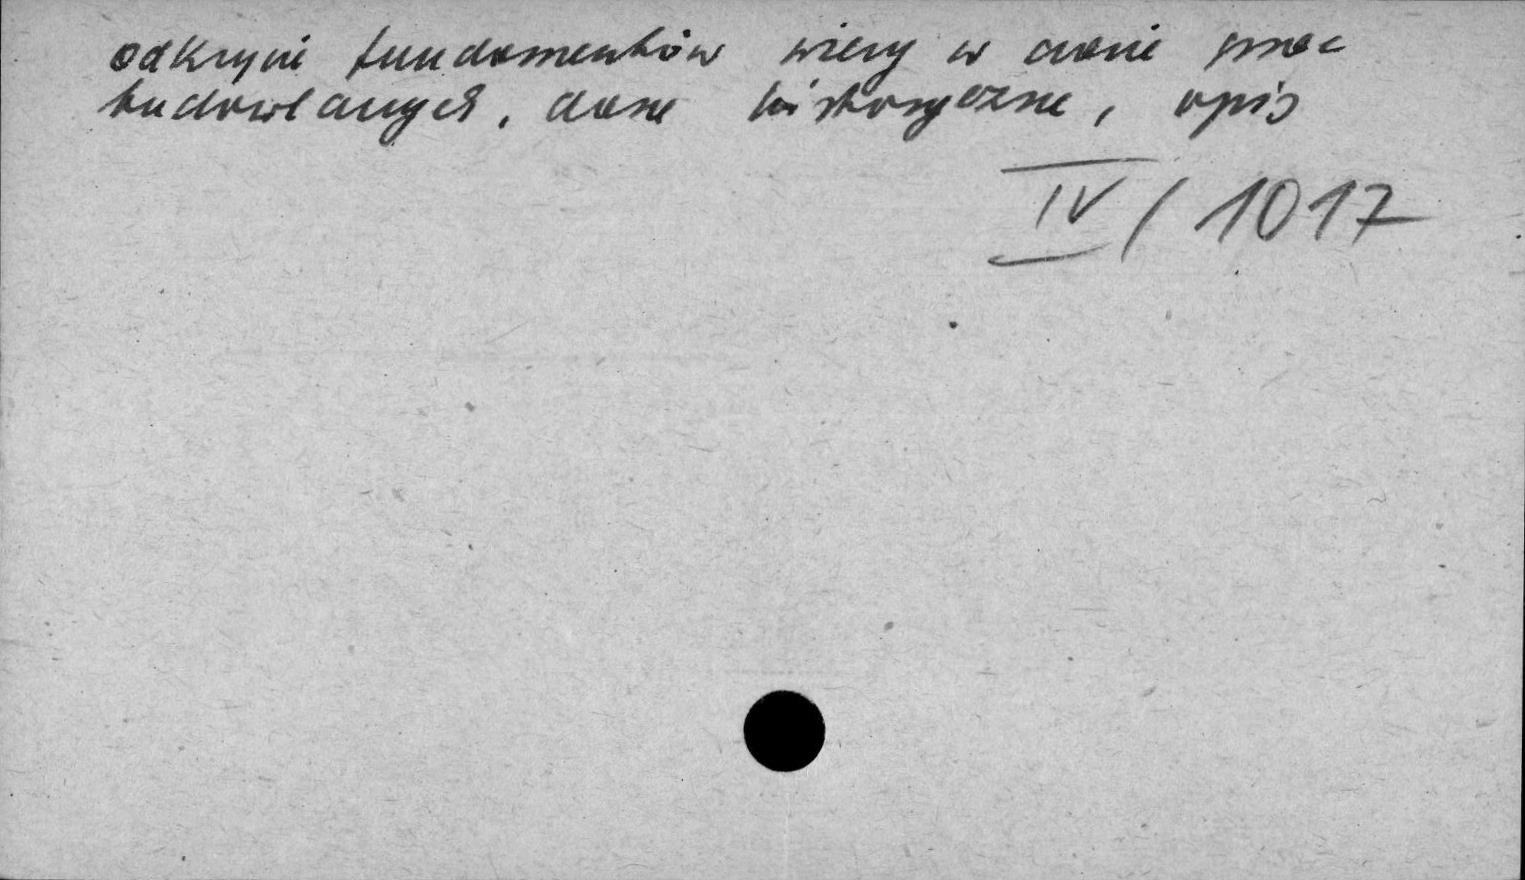 odkrycie fundamentów wieży w czasie prac
budowlanych, dane historyczne, opis
IV / 1017